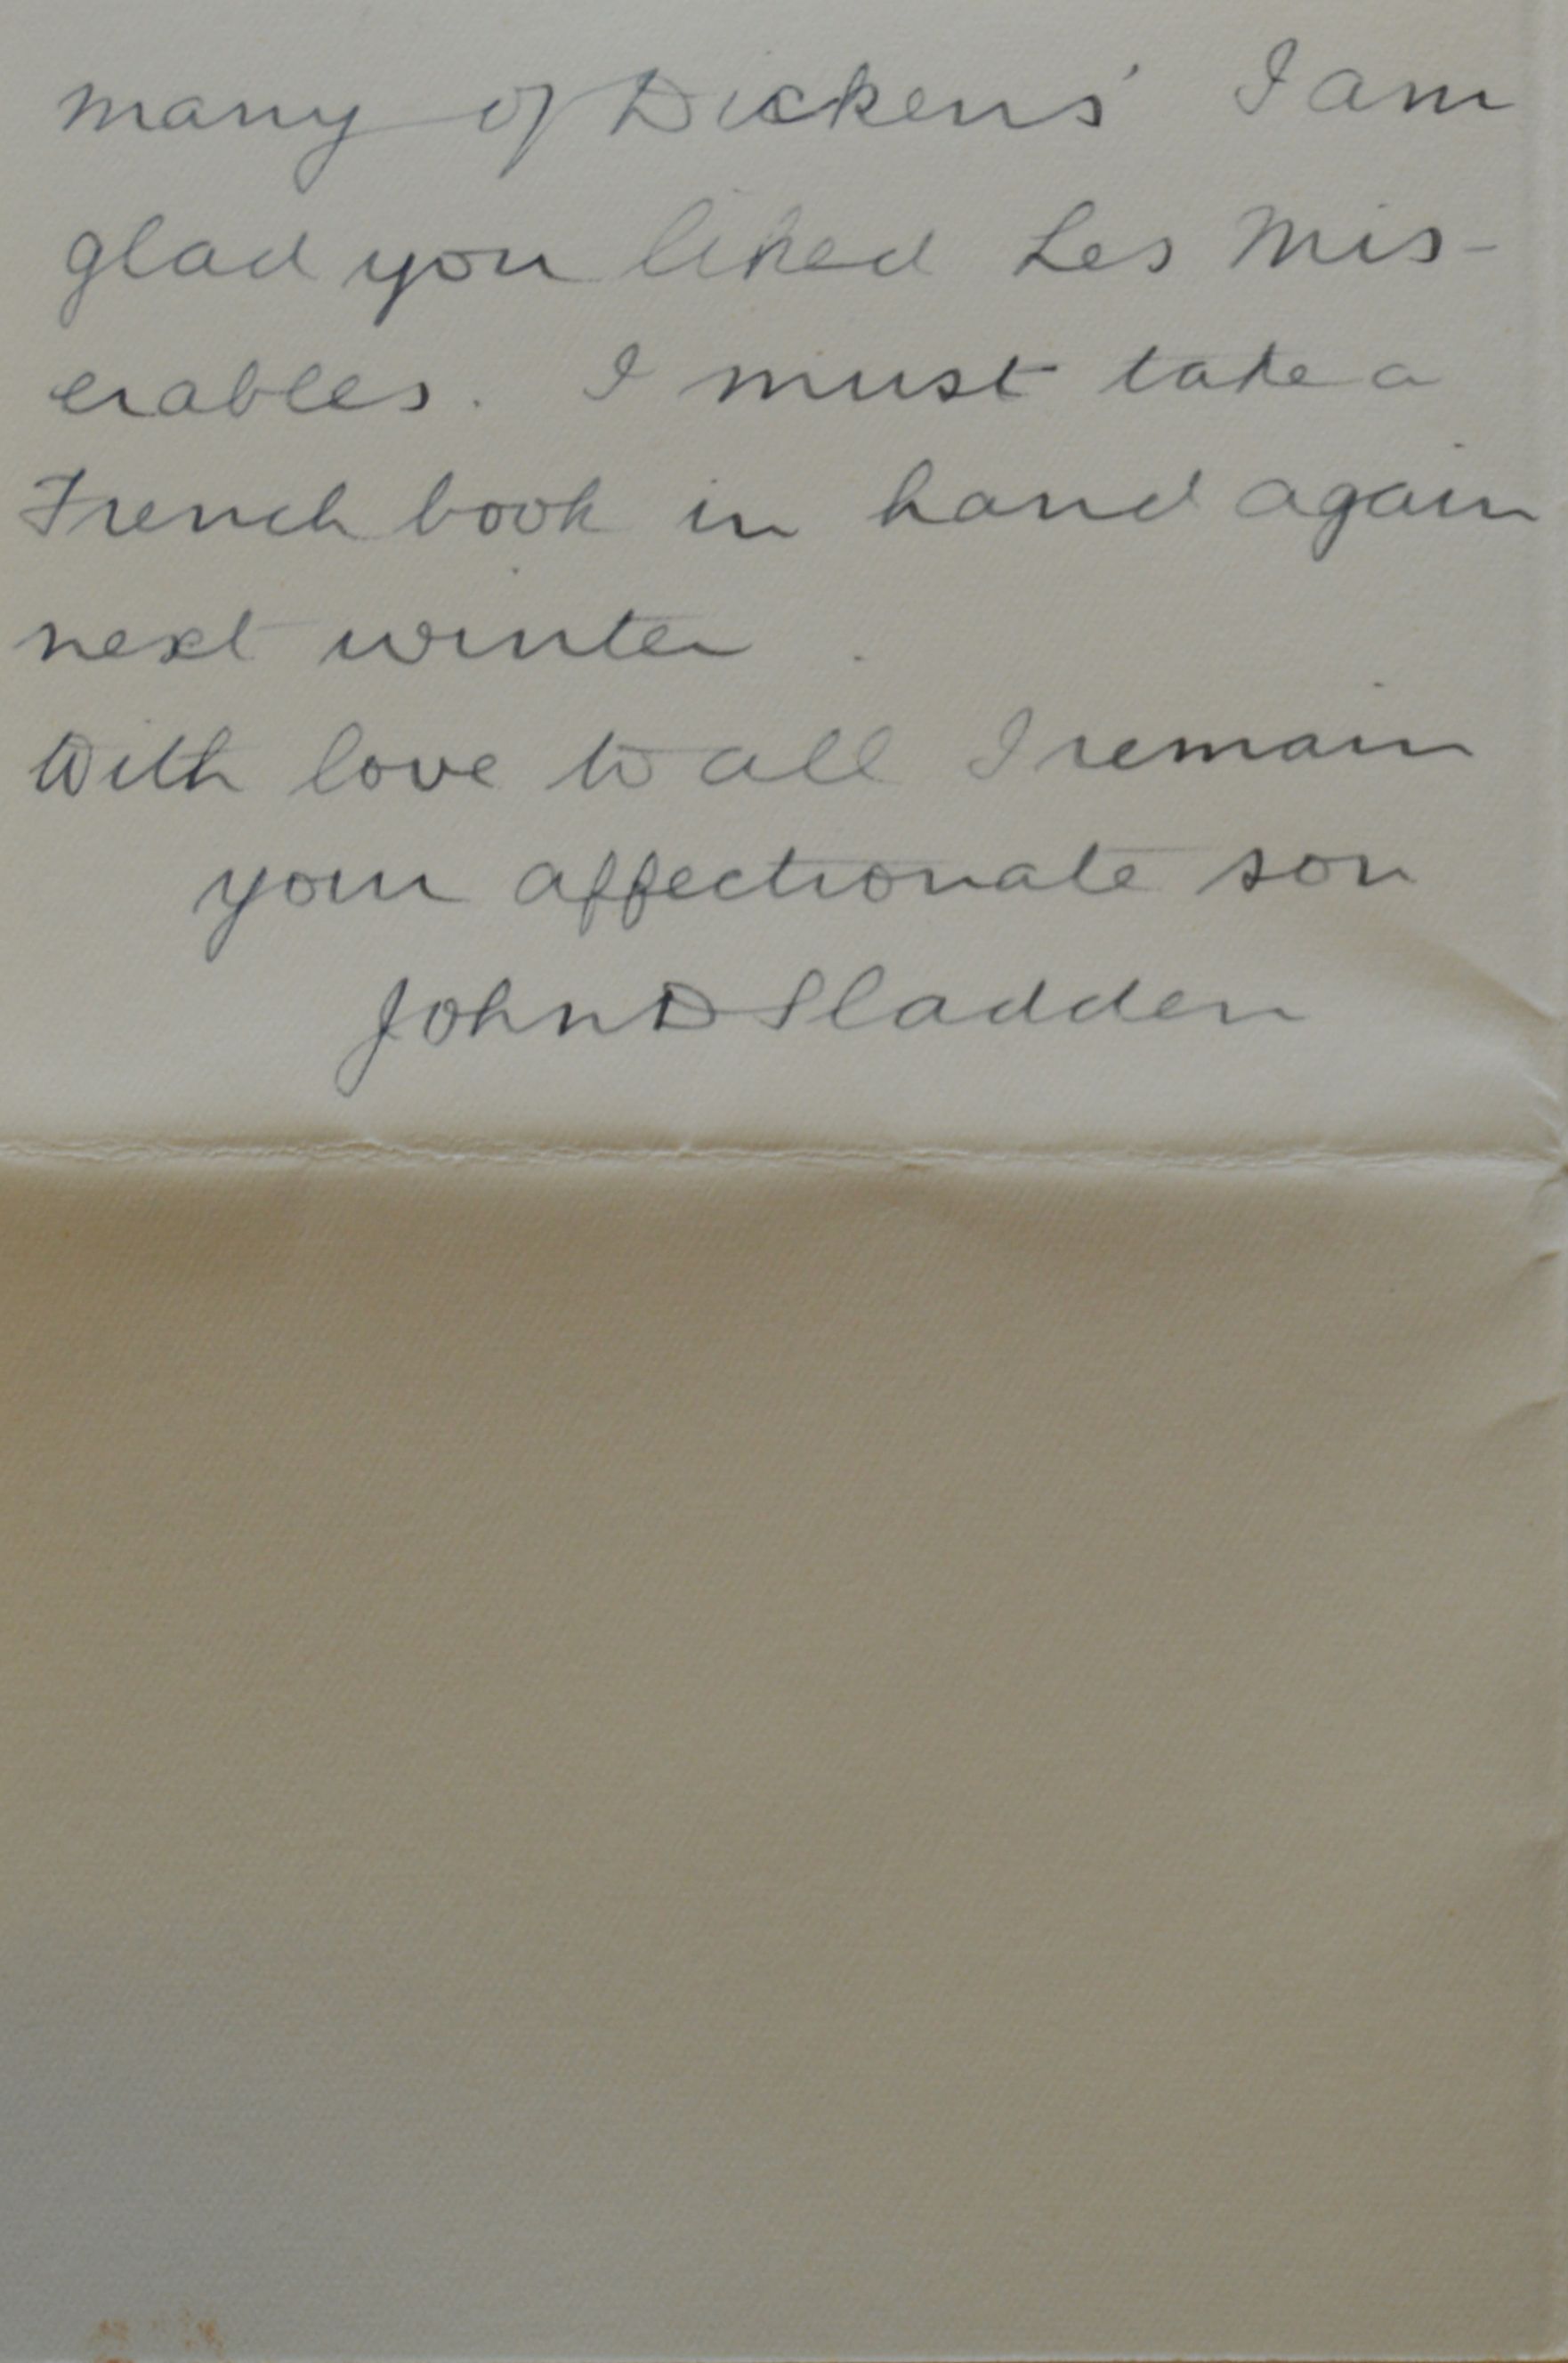 many of Dickens' I am
glad you liked Les Mis-
erables. I must take a
French book in hand again
next winter.
With love to all I remain
your affectionate son
John D Sladden